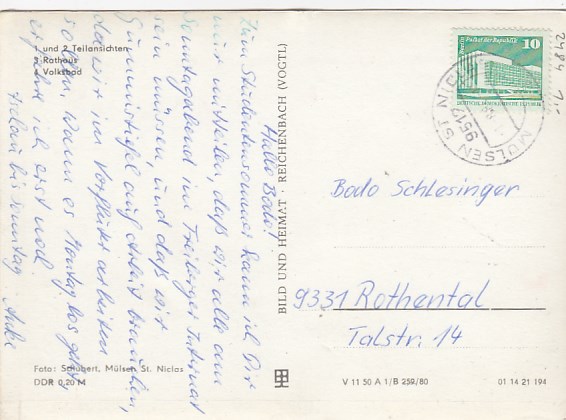 1 und 2 Teilansichten
3 Rathaus
4 Volksbad
Hallo Bodo!
Zum Studentensommer kann ich Dir
nur mitteilen, daß wir alle am
Sonntagabend im Freiberger Internat
sein müssen, und daß wir
Gummistiefel auf Arbeit brauchen,
da wir im Vorfluter arbeiten
sollen. Wann es Montag los geht,
erfahre ich erst noch.
bis Sonntag
Anke
Foto: Schubert, Mülsen St. Niclas
DDR 0,20 M
BILD UND HEIMAT · REICHENBACH (VOGTL)
Berlin-Palast der Republik
10
DEUTSCHE DEMOKRATISCHE REPUBLIK
9512 MÜLSEN ST NIC
2484
Bodo Schlesinger
9331 Rothental
Talstr. 14
V 11 50 A 1/B 259/80
01 14 21 194